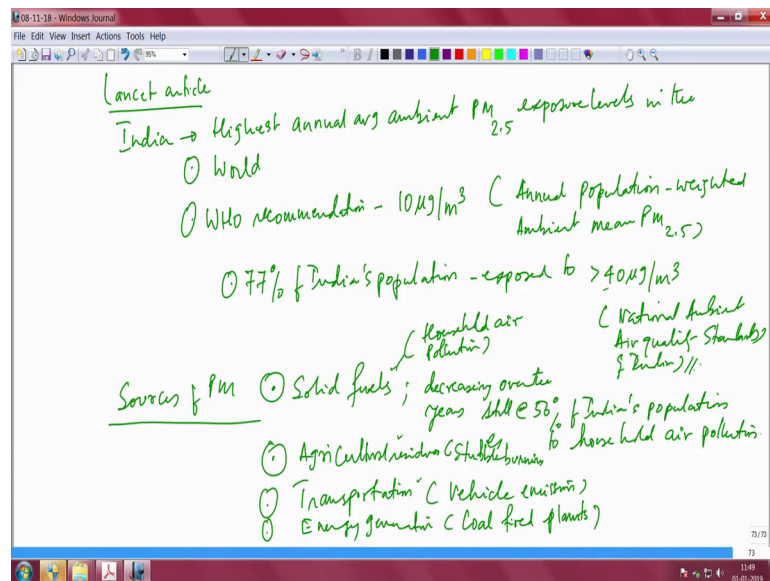 08-11-18 - Windows Journal
File Edit View Insert Actions Tools Help
96%
Lancet article
India → Highest annual avg ambient PM2.5 exposure levels in the
World
WHO recommendation - 10 µg/m³ ( Annual Population-weighted
Ambient mean PM2.5)
77% of India's population - exposed to >40µg/m³
( National Ambient
Air quality Standards
of India) //.
( Household air
pollution)
Sources of PM Solid fuels ; decreasing over the
years still @ 56% of India's population
to household air pollution.
Agricultural residues (stubble burning
Transportation ( Vehicle emission)
Energy generation ( Coal fired plants)
73/73
73
11:49
01-01-2019